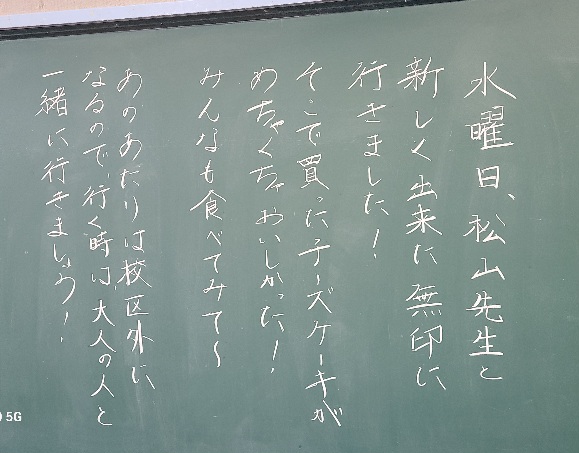 水曜日、松山先生と
新しく出来た無印に
行きました！
そこで買ったチーズケーキが
めちゃくちゃおいしかった！
みんなも食べてみて～
あのあたりは校区外に
なるので、行く時は、大人の人と
一緒に行きましょう！
5G